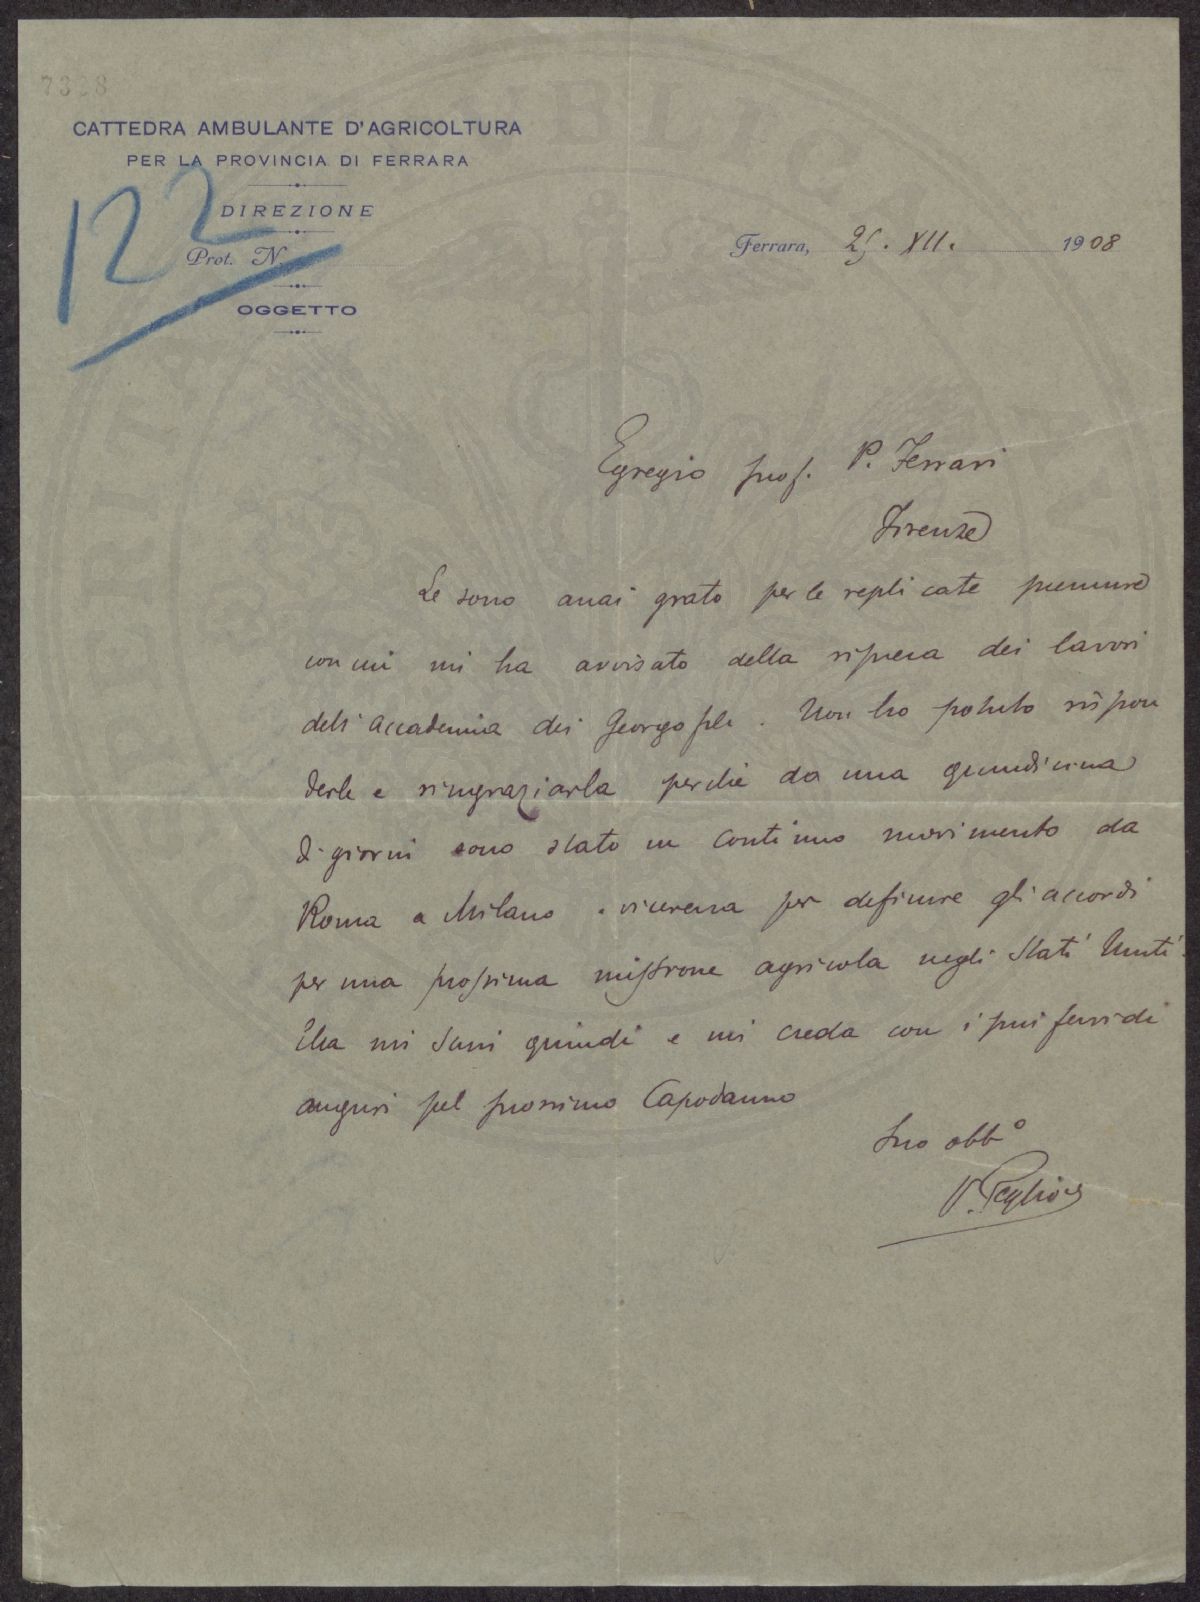 7328
CATTEDRA AMBULANTE D'AGRICOLTURA
PER LA PROVINCIA DI FERRARA
DIREZIONE
122
Prot. N.
OGGETTO
Ferrara, 25. XII. 1908
Egregio prof. P. Ferrari
Firenze
Le sono assai grato per le replicate premure
con cui mi ha avvisato della ripresa dei lavori
dell'Accademia dei Georgofili. Non ho potuto rispon
derle e ringraziarla perchè da una quindicina
di giorni sono stato in continuo movimento da
Roma a Milano e viceversa per definire gli accordi
per una prossima missione agricola negli Stati Uniti.
Ella mi scusi quindi e mi creda con i più fervidi
auguri pel prossimo Capodanno
Suo obb°
V. Peglion